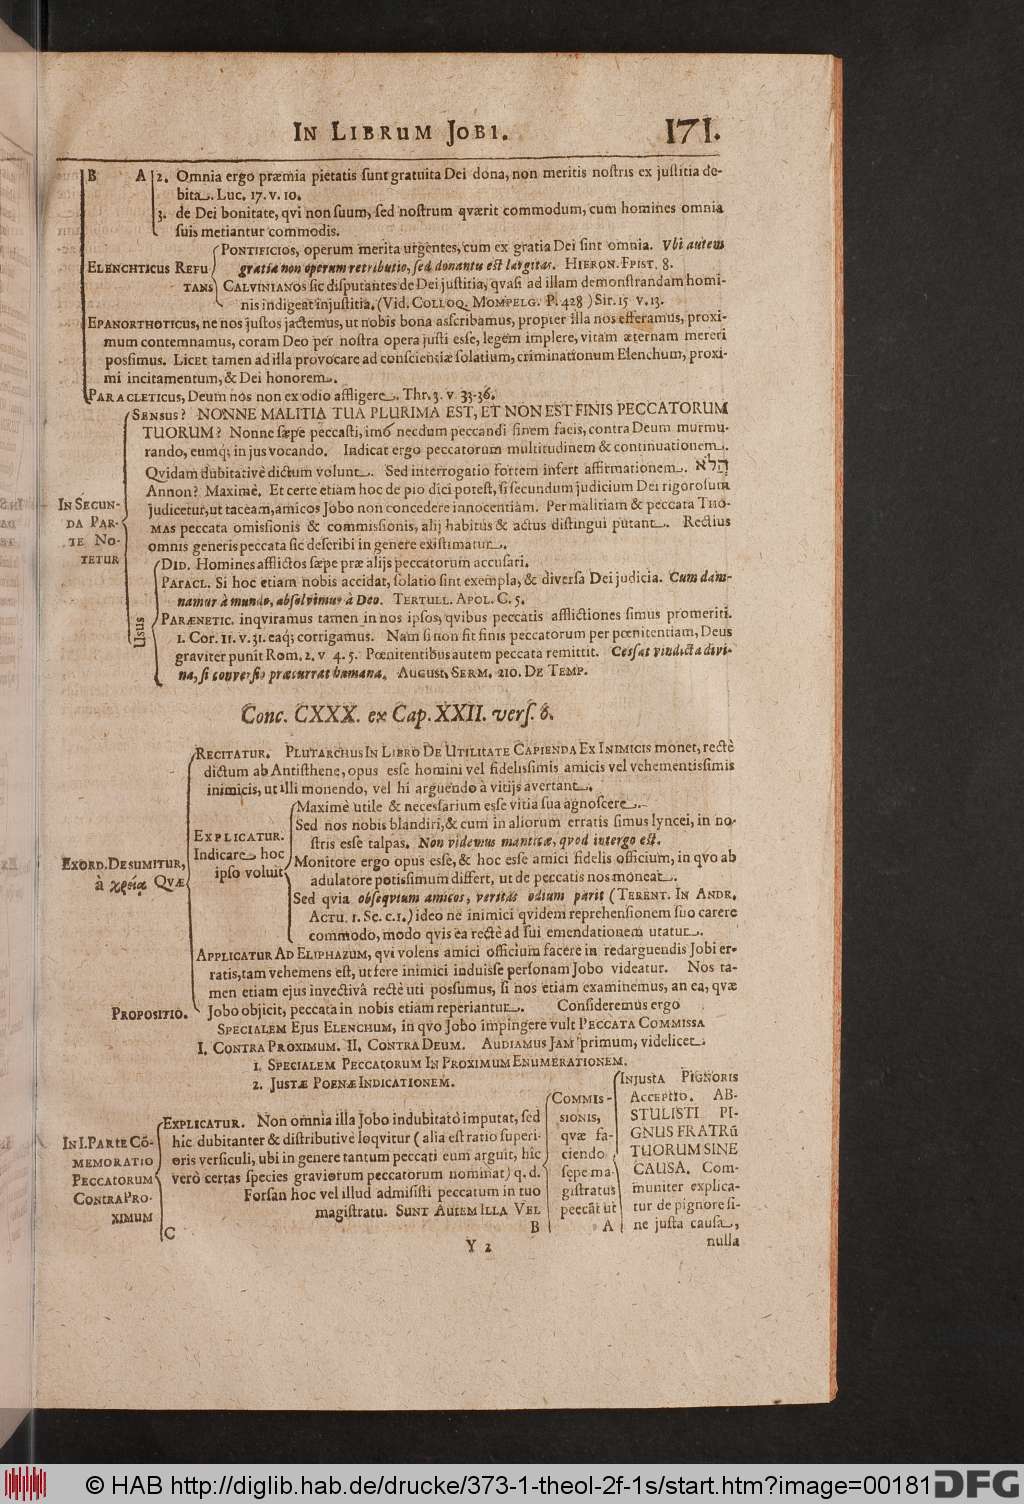 IN LIBRUM JOBI. 171.
B A 2. Omnia ergo præmia pietatis sunt gratuita Dei dona, non meritis nostris ex justitia de-
bita. Luc. 17. v. 10.
3. de Dei bonitate, qvi non suum, sed nostrum qværit commodum, cum homines omnia
suis metiantur commodis.
PONTIFICIOS, operum merita urgentes, cum ex gratia Dei sint omnia. Vbi autem
ELENCHTICUS REFU gratia non operum retributio, sed donantis est largitas. HIERON. EPIST. 8.
TANS CALVINIANOS sic disputantes de Dei justitia, qvasi ad illam demonstrandam homi-
nis indigeat injustitia. (Vid. COLLOQ. MOMPELG. P. 428) Sir. 15 v. 13.
EPANORTHOTICUS, ne nos justos jactemus, ut nobis bona asscribamus, propter illa nos efferamus, proxi-
mum contemnamus, coram Deo per nostra opera justi esse, legem implere, vitam æternam mereri
possimus. Licet tamen ad illa provocare ad conscientiæ solatium, criminationum Elenchum, proxi-
mi incitamentum, & Dei honorem.
PARACLETICUS, Deum nos non ex odio affligere. Thr. 3. v 33-36.
SENSUS? NONNE MALITIA TUA PLURIMA EST, ET NON EST FINIS PECCATORUM
TUORUM? Nonne sæpe peccasti, imò necdum peccandi finem facis, contra Deum murmu-
rando, eumq; in jus vocando. Indicat ergo peccatorum multitudinem & continuationem.
Qvidam dubitativè dictum volunt. Sed interrogatio fortem infert affirmationem. הֲלֹא
Annon? Maximè. Et certe etiam hoc de pio dici potest, si secundum judicium Dei rigorosum
IN SECUN- judicetur, ut taceam, amicos Jobo non concedere innocentiam. Per malitiam & peccata THO-
DA PAR- MAS peccata omissionis & commissionis, alij habitus & actus distingui putant. Rectius
TE NO- omnis generis peccata sic describi in genere existimatur.
TETUR DID. Homines afflictos sæpe præ alijs peccatorum accusari.
PARACL. Si hoc etiam nobis accidat, solatio sint exempla, & diversa Dei judicia. Cum dam-
namur à mundo, absolvimur à Deo. TERTULL. APOL. C. 5.
USUS PARÆNETIC. inqviramus tamen in nos ipsos, qvibus peccatis afflictiones simus promeriti.
1. Cor. 11. v. 31. eaq; corrigamus. Nam si non fit finis peccatorum per pœnitentiam, Deus
graviter punit Rom. 2. v 4. 5. Pœnitentibus autem peccata remittit. Cessat vindicta divi-
na, si conversio præcurrat humana. AUGUST. SERM. 210. DE TEMP.
Conc. CXXX. ex Cap. XXII. vers. 6.
RECITATUR. PLUTARCHUS IN LIBRO DE UTILITATE CAPIENDA EX INIMICIS monet, rectè
dictum ab Antisthene, opus esse homini vel fidelissimis amicis vel vehementissimis
inimicis, ut illi monendo, vel hi arguendo à vitijs avertant.
Maximè utile & necessarium esse vitia sua agnoscere.
Sed nos nobis blandiri, & cum in aliorum erratis simus lyncei, in no-
EXPLICATUR. stris esse talpas. Non videmus manticæ, qvod in tergo est.
EXORD. DESUMITUR, Indicare hoc Monitore ergo opus esse, & hoc esse amici fidelis officium, in qvo ab
à χρείᾳ QVÆ ipso voluit adulatore potissimum differt, ut de peccatis nos moneat.
Sed qvia obseqvium amicos, veritas odium parit (TERENT. IN ANDR.
ACTU. 1. Sc. c. 1.) ideo ne inimici qvidem reprehensionem suo carere
commodo, modo qvis ea rectè ad sui emendationem utatur.
APPLICATUR AD ELIPHAZUM, qvi volens amici officium facere in redarguendis Jobi er-
ratis, tam vehemens est, ut fere inimici induisse personam Jobo videatur. Nos ta-
men etiam ejus invectivâ rectè uti possumus, si nos etiam examinemus, an ea, qvæ
PROPOSITIO. Jobo objicit, peccata in nobis etiam reperiantur. Consideremus ergo
SPECIALEM EJUS ELENCHUM, in qvo Jobo impingere vult PECCATA COMMISSA
I. CONTRA PROXIMUM. II. CONTRA DEUM. AUDIAMUS JAM primum, videlicet
1. SPECIALEM PECCATORUM IN PROXIMUM ENUMERATIONEM.
2. JUSTÆ POENÆ INDICATIONEM.
IN I. PARTE CÕ-
MEMORATIO
PECCATORUM
CONTRA PRO-
XIMUM
EXPLICATUR. Non omnia illa Jobo indubitatò imputat, sed
hic dubitanter & distributivè loqvitur (alia est ratio superi-
oris versiculi, ubi in genere tantum peccati eum arguit, hic
verò certas species graviorum peccatorum nominat) q. d.
Forsan hoc vel illud admisisti peccatum in tuo
magistratu. SUNT AUTEM ILLA VEL
C B
COMMIS-
SIONIS,
qvæ fa-
ciendo
sępe ma-
gistratus
peccãt ut
A
INJUSTA PIGNORIS
ACCEPTIO. AB-
STULISTI PI-
GNUS FRATRŨ
TUORUM SINE
CAUSA. Com-
muniter explica-
tur de pignore si-
ne justa causa,
Y 2 nulla
© HAB http://diglib.hab.de/drucke/373-1-theol-2f-1s/start.htm?image=00181 DFG